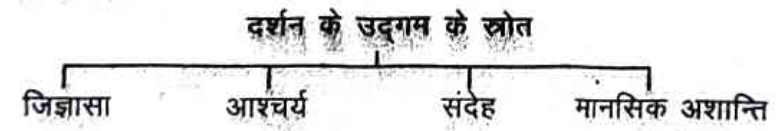 दर्शन के उद्गम के स्रोत
जिज्ञासा आश्चर्य संदेह मानसिक अशान्ति